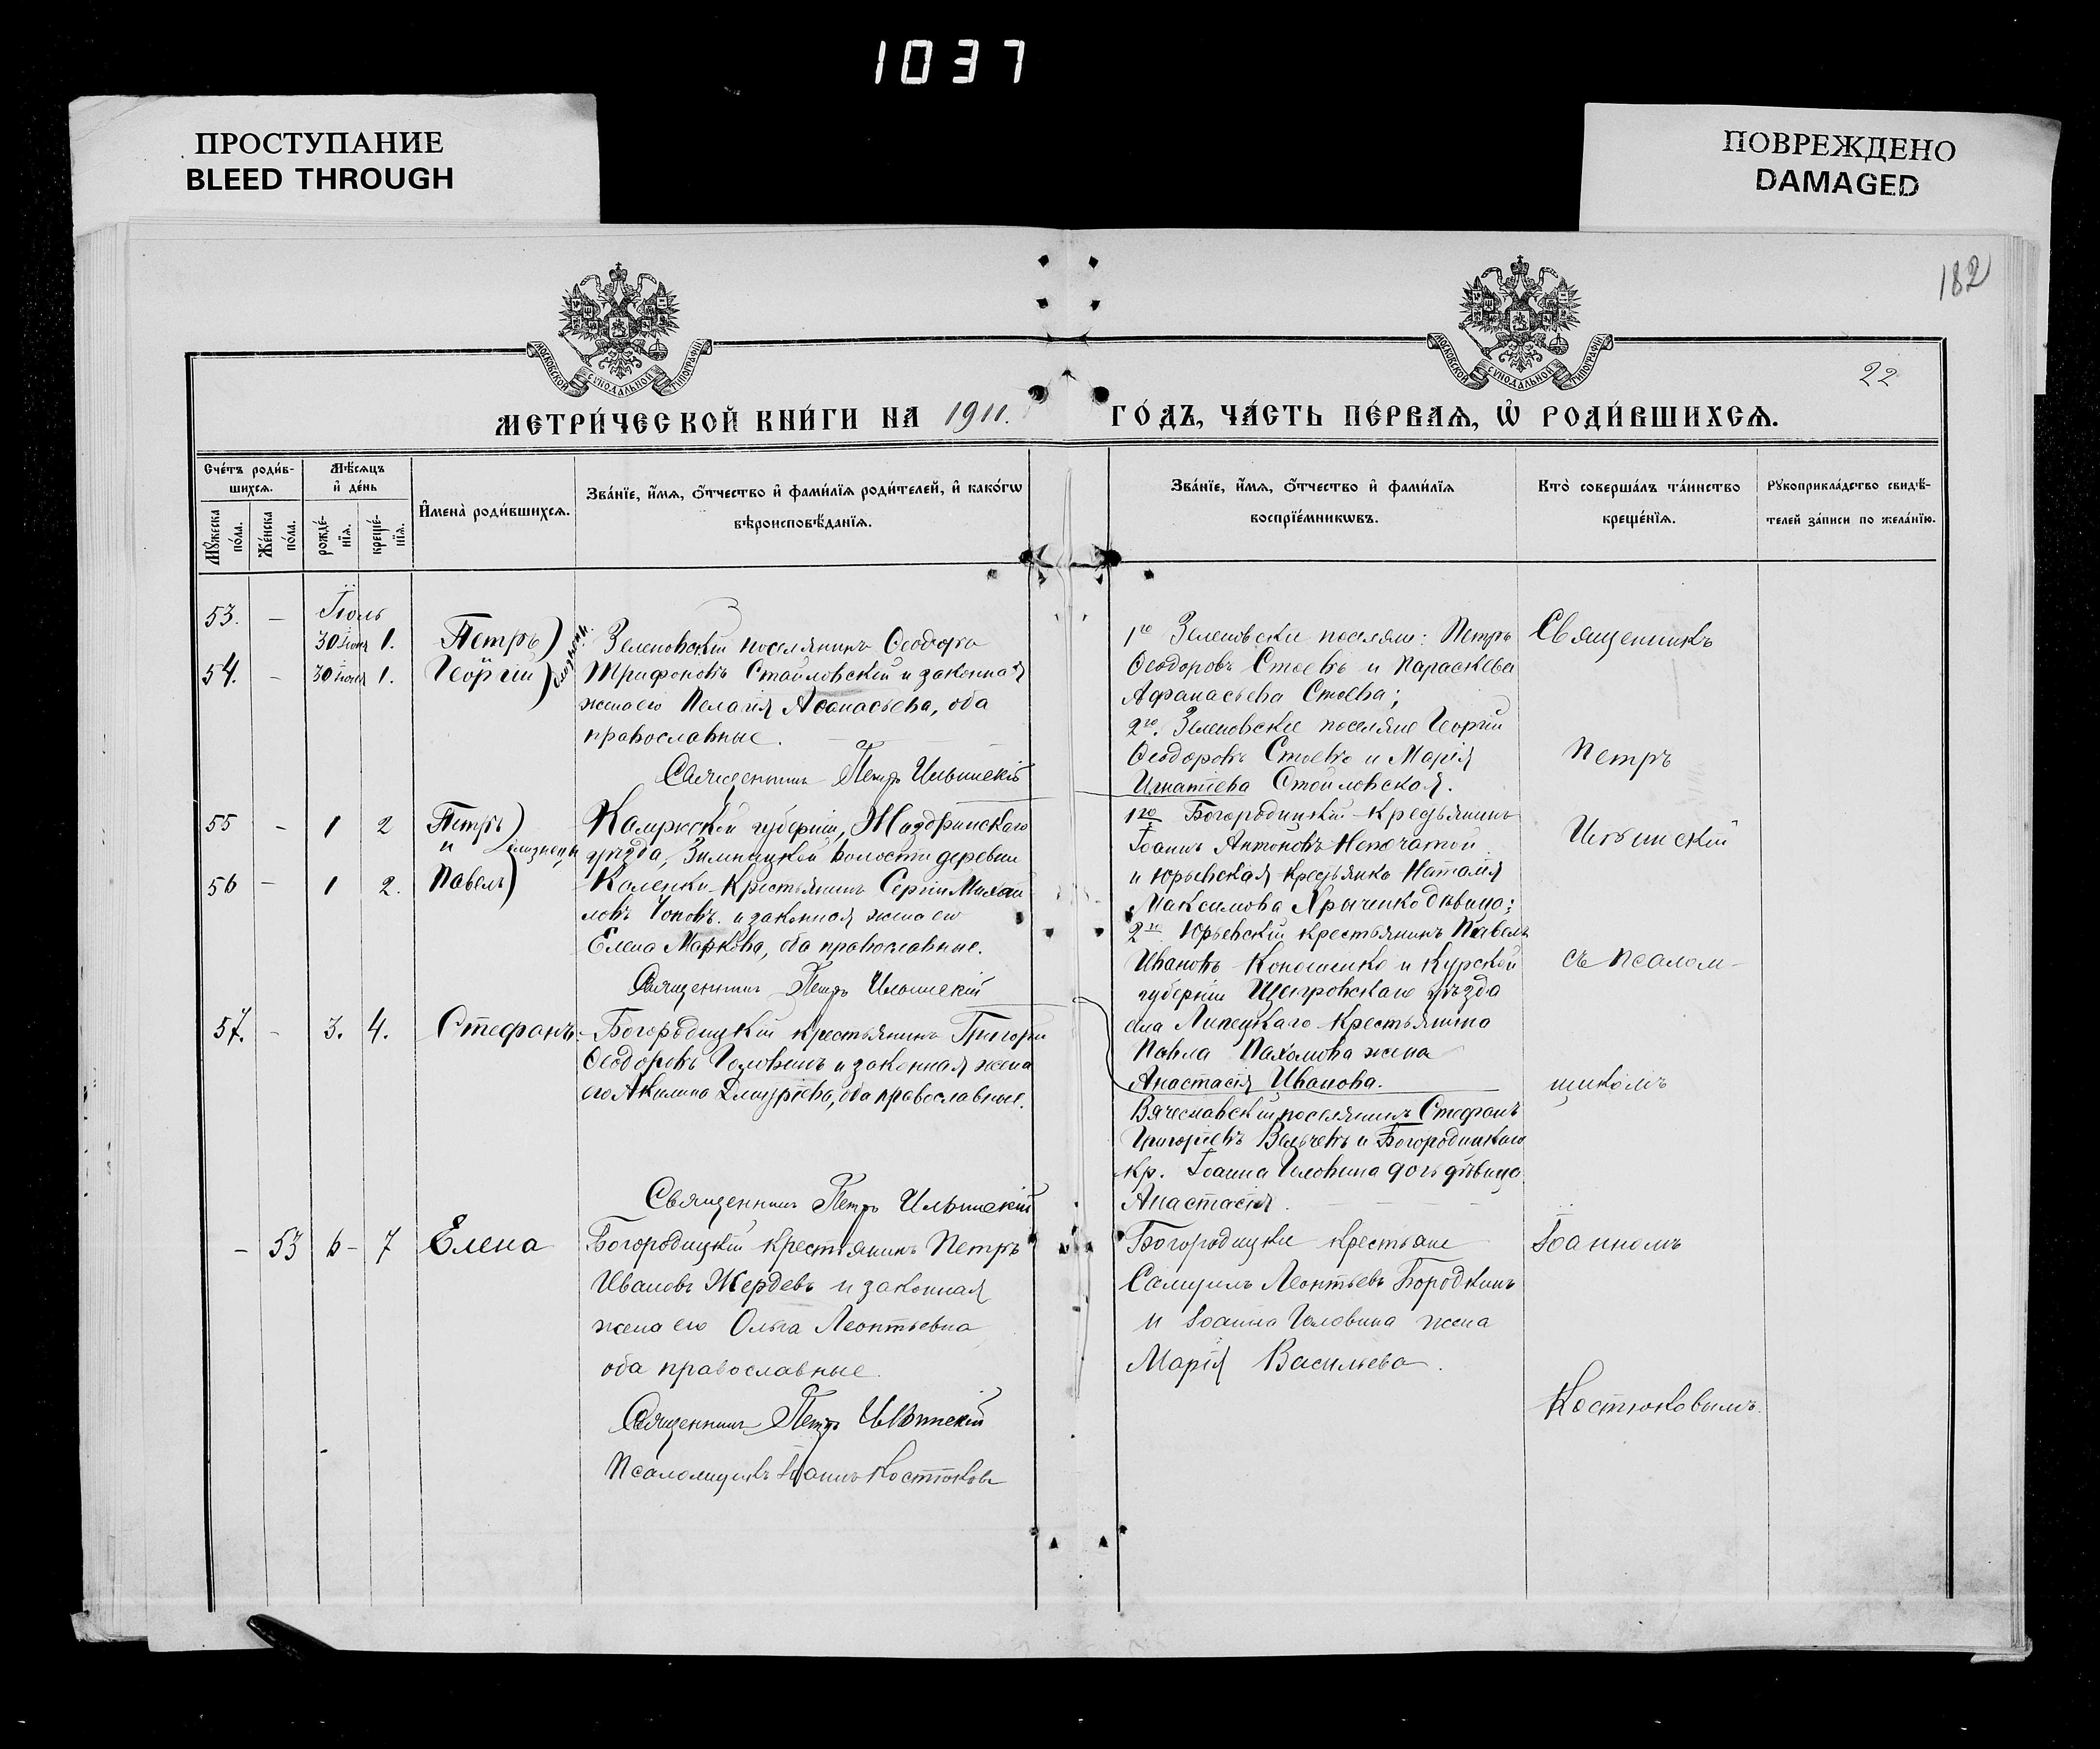 1037
ПРОСТУПАНИЕ
BLEED THROUGH
ПОВРЕЖДЕНО
DAMAGED
182
22
МОСКОВСКОЙ СѴНОДАЛЬНОЙ ТИПОГРАФІИ
МОСКОВСКОЙ СѴНОДАЛЬНОЙ ТИПОГРАФІИ
МЕТРИ́ЧЕСКОЙ КНИ́ГИ НА 1911. ГО́ДЪ, ЧА́СТЬ ПЕ́РВАѦ, Ѡ҆ РОДИ́ВШИХСѦ.
Сче́тъ роди́в-
шихсѧ.
Мꙋ́жеска по́ла.
Же́нска по́ла.
Мѣ́сѧцъ
и҆ де́нь
рожде́-
нїѧ.
креще́-
нїѧ.
И҆мена̀ роди́вшихсѧ.
Зва́нїе, и҆́мѧ, ѻ҆́тчество и҆ фами́лїѧ роди́телей, и҆ како́гѡ
вѣроисповѣ́данїѧ.
Зва́нїе, и҆́мѧ, ѻ҆́тчество и҆ фами́лїѧ
воспрїе́мникѡвъ.
Кто̀ соверша́лъ та́инство
креще́нїѧ.
Рꙋкоприкла́дство свидѣ́-
телей за́писи по жела́нїю.
Іюль
53. – 30 іюня 1. Петръ
54. – 30 іюня 1. Георгій
близнецы.
Зеленовскій поселянинъ Ѳеодоръ
Трифоновъ Стойловскій и законная
жена его Пелагія Аѳанасьева, оба
православные.
Священникъ Петръ Ильинскій
1го Зеленовскіе поселяне: Петръ
Ѳеодоровъ Стоевъ и Параскева
Афанасьева Стоева;
2го. Зеленовскіе поселяне Георгій
Ѳеодоровъ Стоевъ и Марія
Игнатіева Стойловская.
55 – 1 2 Петръ
и близнецы
56 – 1 2. Павелъ
Калужской губерніи, Жиздринскаго
уѣзда, Зимницкой волости деревни
Коленки крестьянинъ Сергій Михаи
ловъ и законная жена его
Елена Маркова, оба православные.
Священникъ Петръ Ильинскій
1го Богородицкій крестьянинъ
Іоаннъ Антоновъ Непочатой
и Юрьевская крестьянка Наталія
Максимова дѣвица;
2го Юрьевскій крестьянинъ Павелъ
Ивановъ Кононенко и Курской
губерніи Щигровскаго уѣзда
села Липецкаго крестьянина
Павла Пахомова жена
Анастасія Иванова.
57. – 3. 4. Стефанъ
Богородицкій крестьянинъ Григорій
Ѳеодоровъ Головинъ и законная жена
его Акилина Димитріева, оба православные.
Священникъ Петръ Ильинскій
Вячеславскій поселянинъ Стефанъ
Григоріевъ Вельчевъ и Богородицкаго
кр. Іоанна Головина дочь дѣвица
Анастасія.
– 53 6 – 7 Елена
Богородицкій крестьянинъ Петръ
Ивановъ Жердевъ и законная
жена его Ольга Леонтьевна
оба православные.
Священникъ Петръ Ильинскій
Псаломщикъ Іоаннъ Костюковъ
Богородицкіе крестьяне
Самуилъ Леонтьевъ Бородкинъ
и Іоанна Головина жена
Марія Васильева.
Священникъ
Петръ
Ильинскій
съ псалом-
щикомъ
Іоанномъ
Костюковымъ.